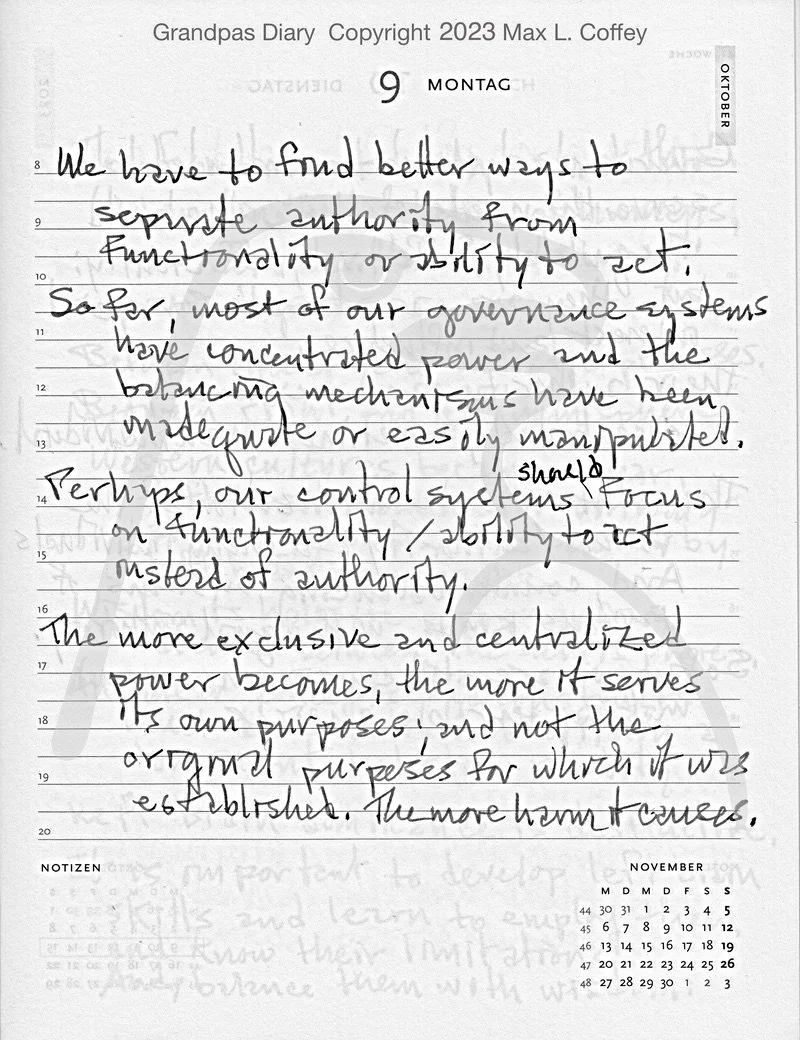 Grandpas Diary Copyright 2023 Max L. Coffey
9 MONTAG
OKTOBER
8 We have to find better ways to
seperate authority from
9
functionality or ability to act.
10
So far, most of our governance systems
11
have concentrated power and the
12 balancing mechanisms have been
inadequate or easily manipulated.
13
should
14 Perhaps, our control systems focus
on functionality / ability to act
15
instead of authority.
16
The more exclusive and centralized
17
power becomes, the more it serves
18 its own purposes, and not the
original purposes for which it was
19
established. The more harm it causes.
20
NOTIZEN
NOVEMBER
M D M D F S S
44 30 31 1 2 3 4 5
45 6 7 8 9 10 11 12
46 13 14 15 16 17 18 19
47 20 21 22 23 24 25 26
48 27 28 29 30 1 2 3